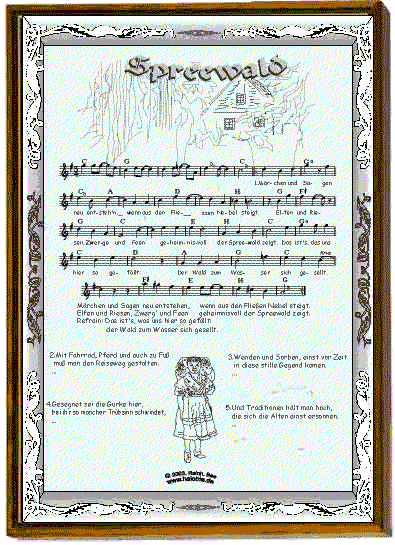 Spreewald
C G C
1.Mär-chen und Sa- gen
C A D H G F#
neu ent-steh'n,__ wenn aus den Flie-__ ssen Ne-bel steigt. El-fen und Rie-
G C G C
sen,Zwer-ge und Feen ge-heim-nis-voll der Spree-wald zeigt. Das ist's, das uns
C D A G C
hier so ge- fällt: der Wald zum Was- ser sich ge- sellt.
F# E H E G
Märchen und Sagen neu entstehen, wenn aus den Fließen Nebel steigt.
Elfen und Riesen, Zwerg' und Feen geheimnisvoll der Spreewald zeigt.
Refrain: Das ist's, was uns hier so gefällt:
der Wald zum Wasser sich gesellt.
2.Mit Fahrrad, Pferd und auch zu Fuß
muß man den Reiseweg gestalten.
...
3.Wenden und Sorben, einst vor Zeit
in diese stille Gegend kamen.
...
4.Gesegnet sei die Gurke hier,
bei ihr so mancher Trübsinn schwindet,
...
5.Und Traditionen hält man hoch,
die sich die Alten einst ersonnen.
...
© 2003, Ralph, Bee